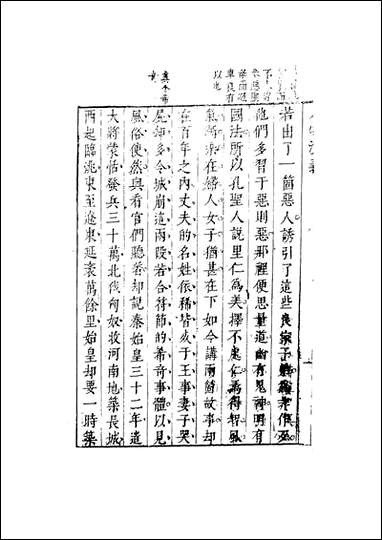 若由了一箇惡人誘引了這些良家子
他們多習于惡則惡那裡便思量道幽有鬼神明有
國法所以孔聖人說里仁為美擇不處仁焉得智風
氣漸染在婦人女子猶甚在下如今講兩箇故事却
在百年之內丈夫的名姓依稀皆歿于王事妻子哭
屍却多令城崩這兩段若合符節的希奇事體以見
風俗使然與看官們聽著却說秦始皇三十二年遣
大將蒙恬發兵三十萬北伐匈奴收河南地築長城
西起臨洮東至遼東延袤萬餘里始皇却要一時築